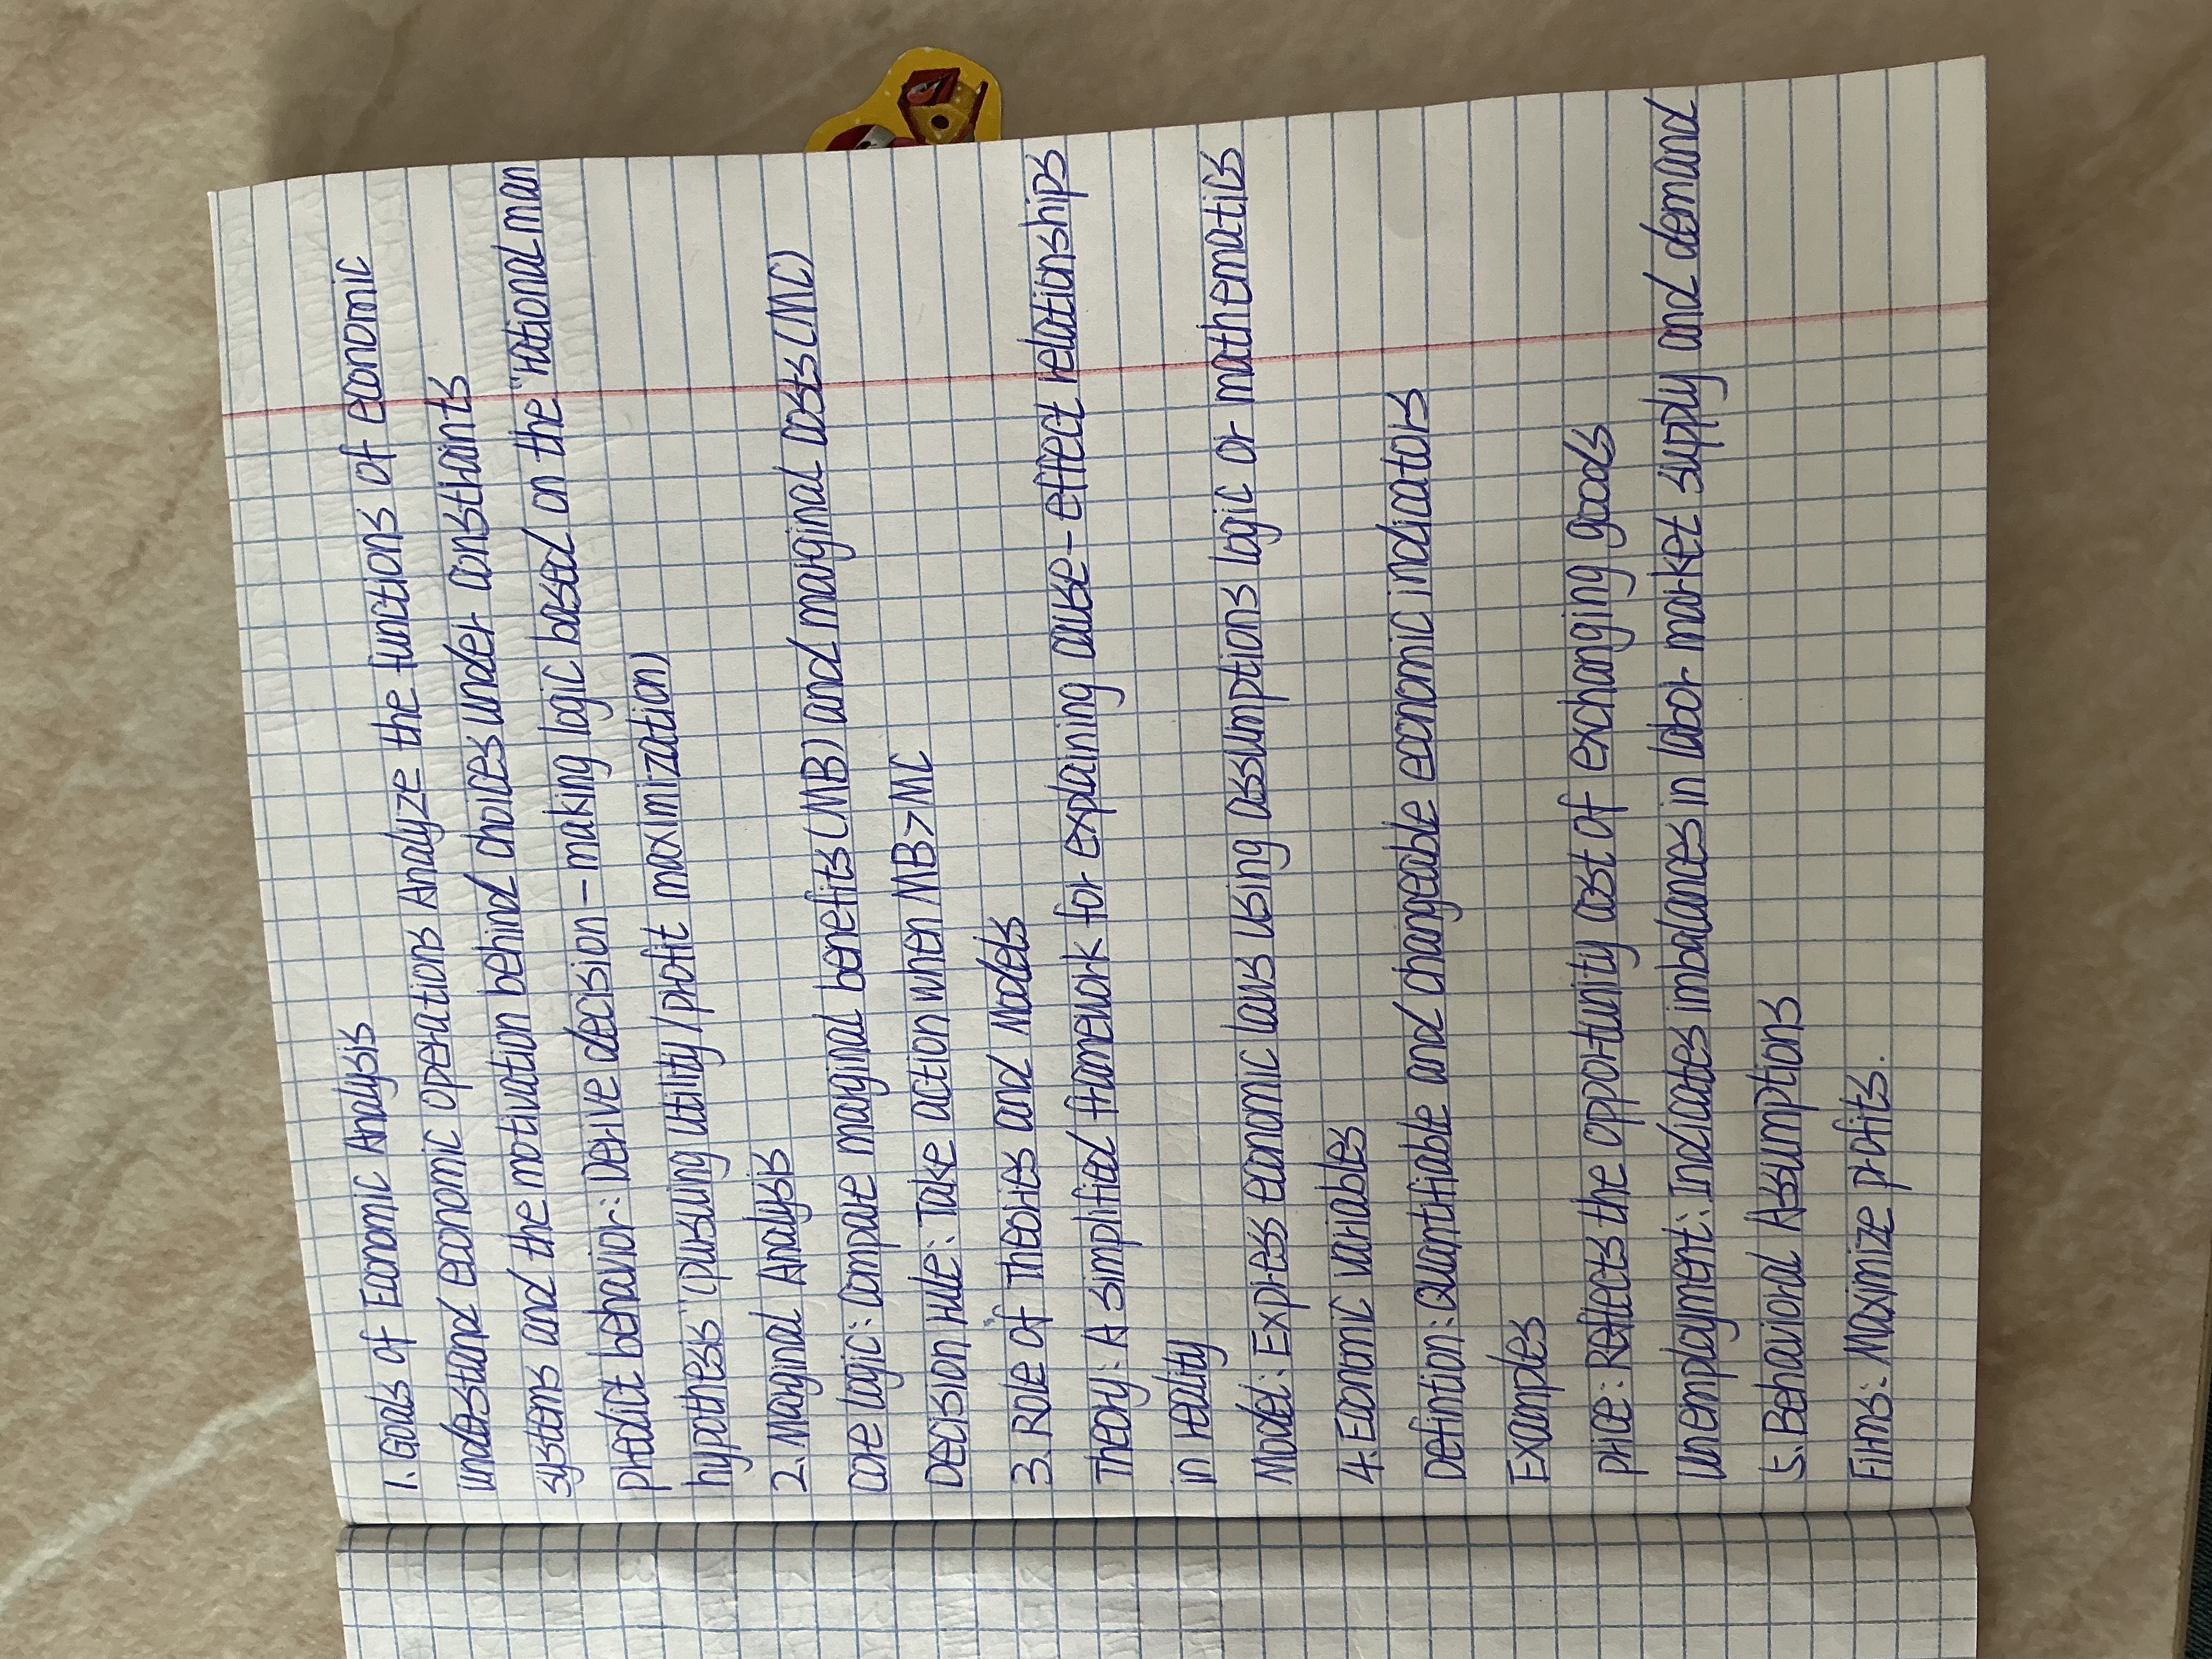 1. Goals of Economic Analysis
understand economic operations Analyze the functions of economic
systems and the motivation behind choices under constraints
predict behavior: Derive decision-making logic based on the "rational man
hypothesis" (pursuing utility/profit maximization)
2. Marginal Analysis
core logic: compare marginal benefits (MB) and marginal costs (MC)
Decision rule: Take action when MB>MC
3. Role of Theories and Models
Theory: A simplified framework for explaining cause-effect relationships
in reality
Model: Express economic laws using assumptions logic or mathematics
4. Economic variables
Definition: Quantifiable and changeable economic indicators
Examples
price: Reflects the opportunity cost of exchanging goods
unemployment: Indicates imbalances in labor market supply and demand
5. Behavioral Assumptions
Firms: Maximize profits.